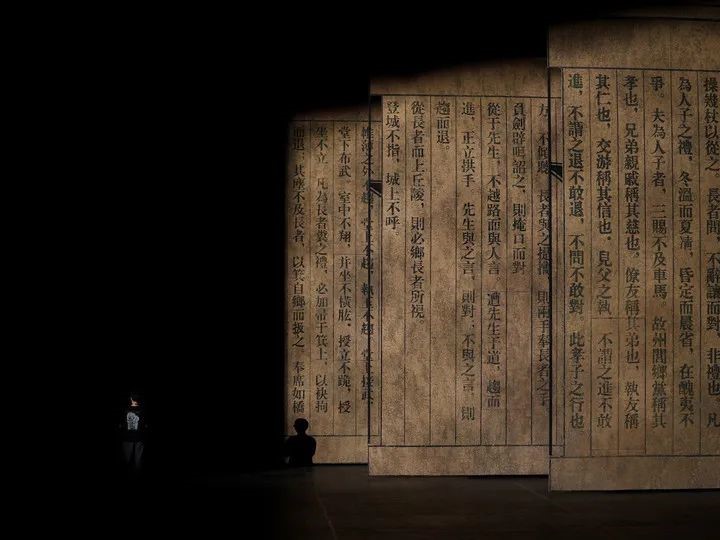 操幾杖以從之。長者問,不辭讓而對,非禮也。凡
為人子之禮,冬溫而夏凊,昏定而晨省,在醜夷不
爭。夫為人子者,三賜不及車馬。故州閭鄉黨稱其
孝也,兄弟親戚稱其慈也,僚友稱其弟也,執友稱
其仁也,交游稱其信也。見父之執,不謂之進不敢
進,不謂之退不敢退,不問不敢對。此孝子之行也
方,不傾聽。長者與之提攜,則兩手奉長者之手
負劍辟咡詔之,則掩口而對
從于先生,不越路而與人言。遭先生于道,趨而
進,正立拱手。先生與之言,則對;不與之言,則
趨而退
從長者而上丘陵,則必鄉長者所視。
登城不指,城上不呼。
帷薄之外不趨,堂上不趨,執玉不趨。堂上接武,
堂下布武。室中不翔,并坐不橫肱。授立不跪,授
坐不立。凡為長者糞之禮,必加帚于箕上,以袂拘
而退;其塵不及長者,以箕自鄉而扱之。奉席如橋